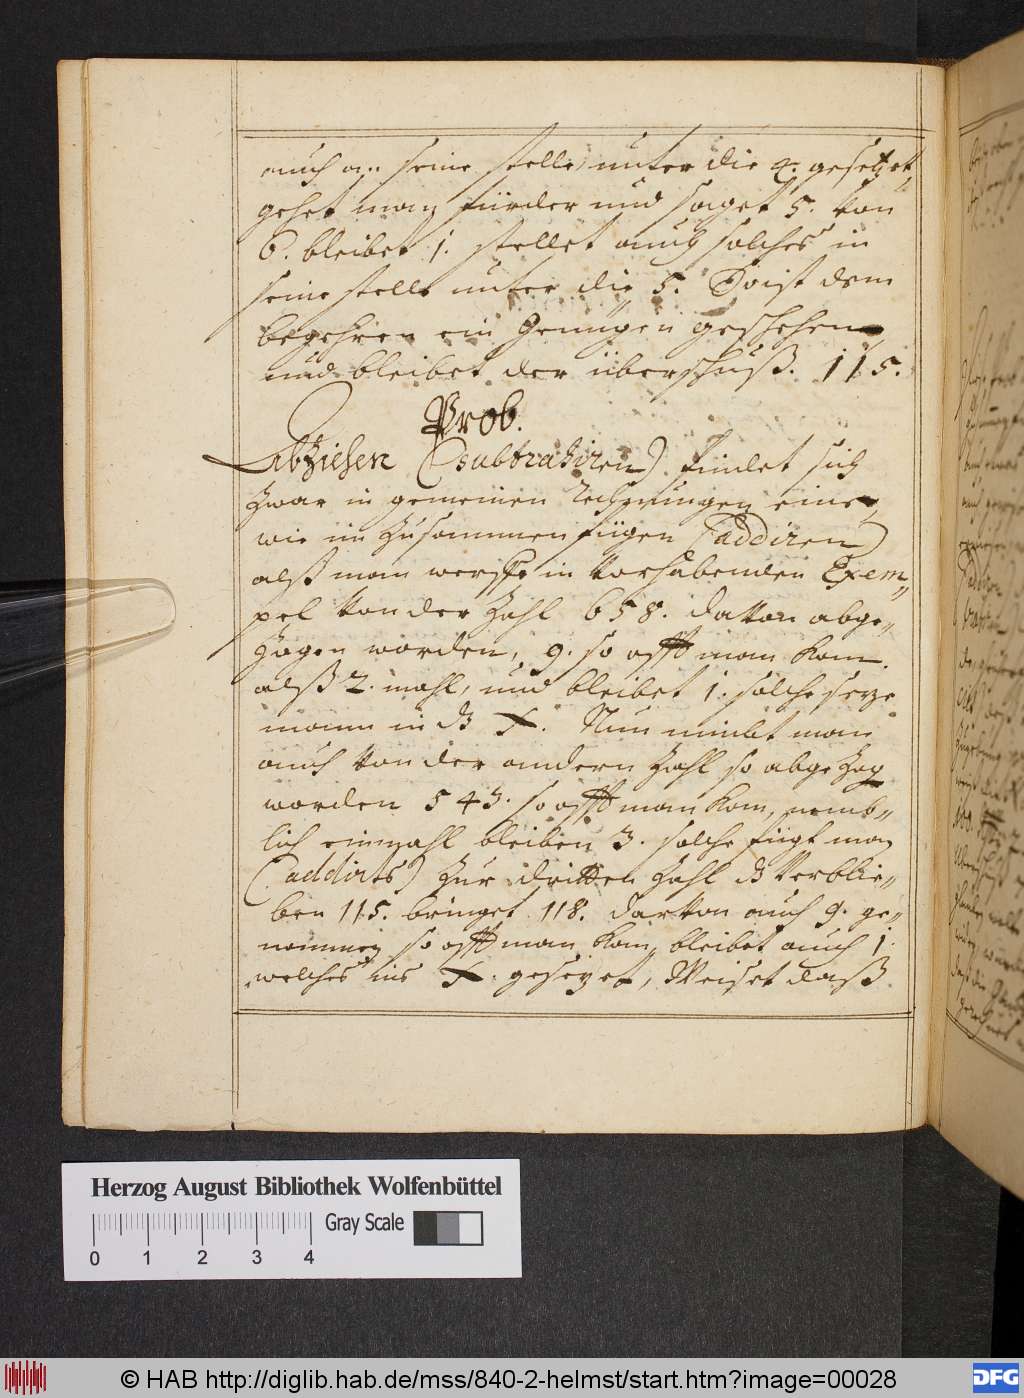 auch an seine stelle, unter die 4. gesetzet
gehet man fürder und saget 5. von
6. bleibet 1. stellet auch solches in
seine stelle unter die 5. So ist dem
begehren ein Genügen geschehen
und bleibet der überschuß. 115.
Prob.
Abziehen (subtrahiren) findet sich
zwar in gemeinen rechnungen eine,
wie im zusammen fügen (addiren)
alß man werffe in vorhabenden Exem-
pel von der Zahl 658. davon abge-
zogen worden, 9. so offt man kan.
alß 2. mahl, und bleibet 1. solche setze
mann in dz X. Nun nimbt man
auch von der andern Zahl so abgezog
worden 543. so offt man kan, nemb-
lich einmahl bleiben 3. solche fügt man
(addirts) zur dritten Zahl dz verblie-
ben 115. bringet 118. darvon auch 9. ge-
nommen so offt man kan, bleibet auch 1.
welches ins X. gesetzet, Weiset daß
Herzog August Bibliothek Wolfenbüttel
Gray Scale
0 1 2 3 4
© HAB http://diglib.hab.de/mss/840-2-helmst/start.htm?image=00028
DFG